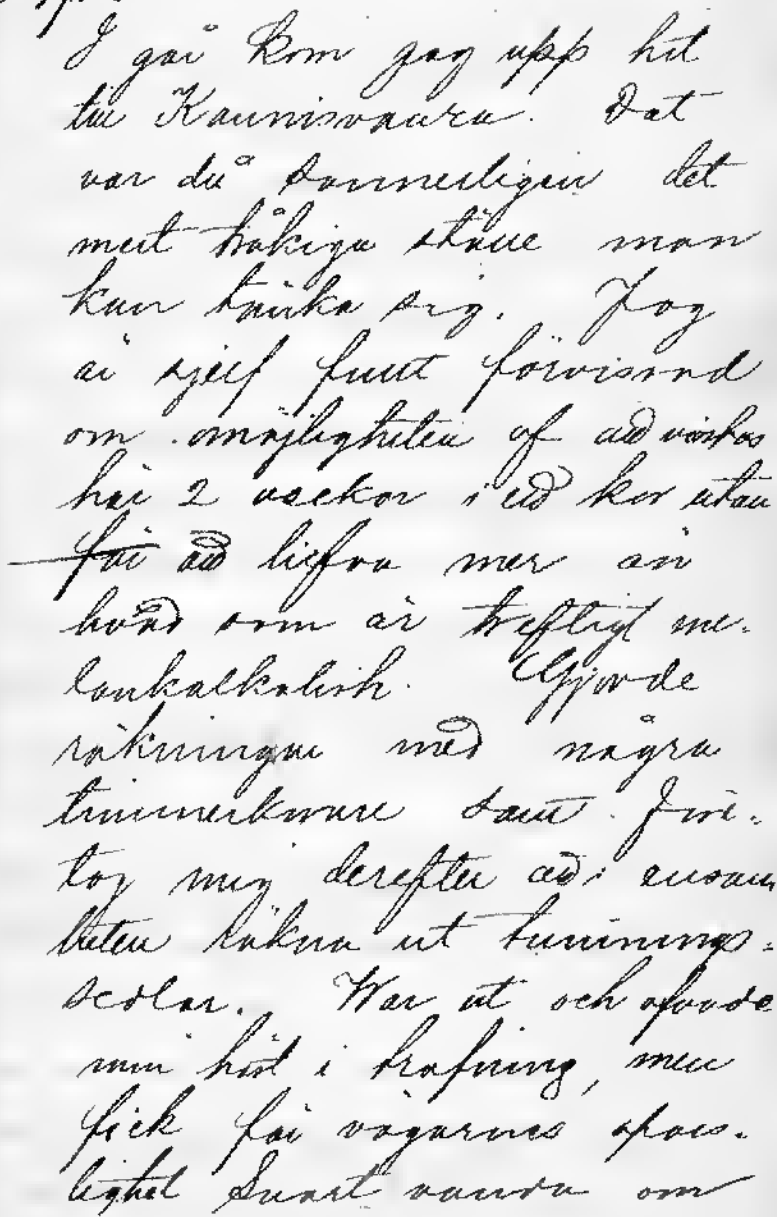 I går kom jag upp hit
till Kaunisvaara. Det
var då sannerligen det
mest tråkiga ställe man
kan tänka sig. Jag
är sjelf fullt förvissad
om omöjligheten af att vistas
här 2 veckor i ett kör utan
för att blifva mer än
hvad som är trefligt me-
lankalkolisk. Gjorde
räkningar med några
timmerkörare samt före-
tog mig derefter att i ensam
heten räkna ut tumnings-
sedlar. War ut och öfvade
min häst i trafning, men
fick för vägarnes spår-
lighet snart vända om